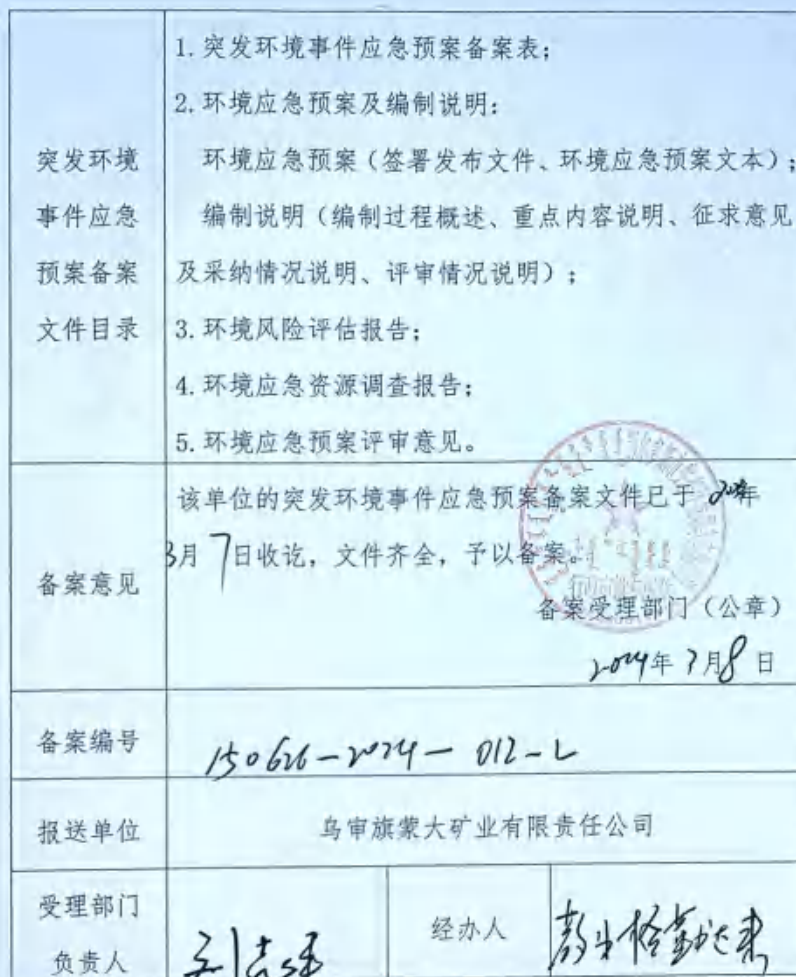 突发环境
事件应急
预案备案
文件目录
1.突发环境事件应急预案备案表;
2.环境应急预案及编制说明:
环境应急预案(签署发布文件、环境应急预案文本);
编制说明(编制过程概述、重点内容说明、征求意见
及采纳情况说明、评审情况说明);
3.环境风险评估报告;
4.环境应急资源调查报告;
5.环境应急预案评审意见。
备案意见
该单位的突发环境事件应急预案备案文件已于 2024年
3月7日收讫,文件齐全,予以备案。
备案受理部门(公章)
2024年3月8日
备案编号
150626-2024-012-L
报送单位
乌审旗蒙大矿业有限责任公司
受理部门
负责人
经办人